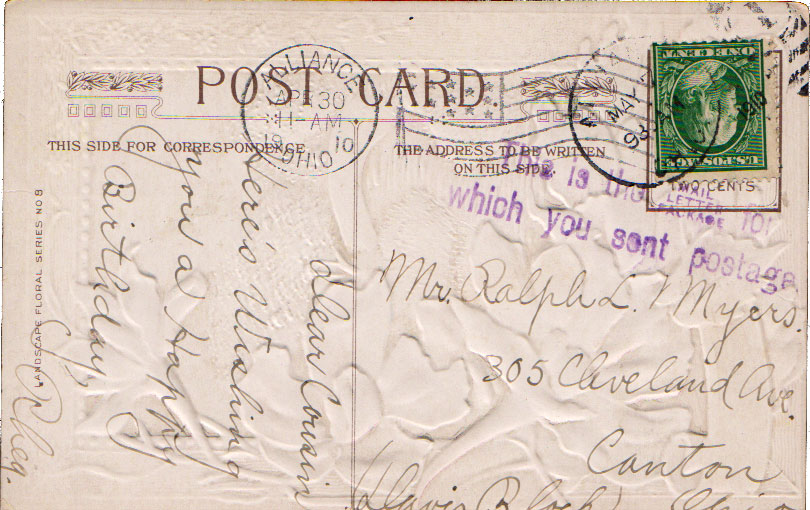 POST CARD.
ALLIANCE
APR 30
11-AM
1910
OHIO
MAY
1910
ONE CENT
U.S. POSTAGE
THIS SIDE FOR CORRESPONDENCE
THE ADDRESS TO BE WRITTEN
ON THIS SIDE.
TWO CENTS
This is the MAIL LETTER PACKAGE for
which you sent postage
Mr. Ralph L. Myers.
305 Cleveland Ave.
Canton
(Davis Block) Ohio
Dear Cousin
Here's Wishing
you a Happy
Birthday,
LANDSCAPE FLORAL SERIES NO 8